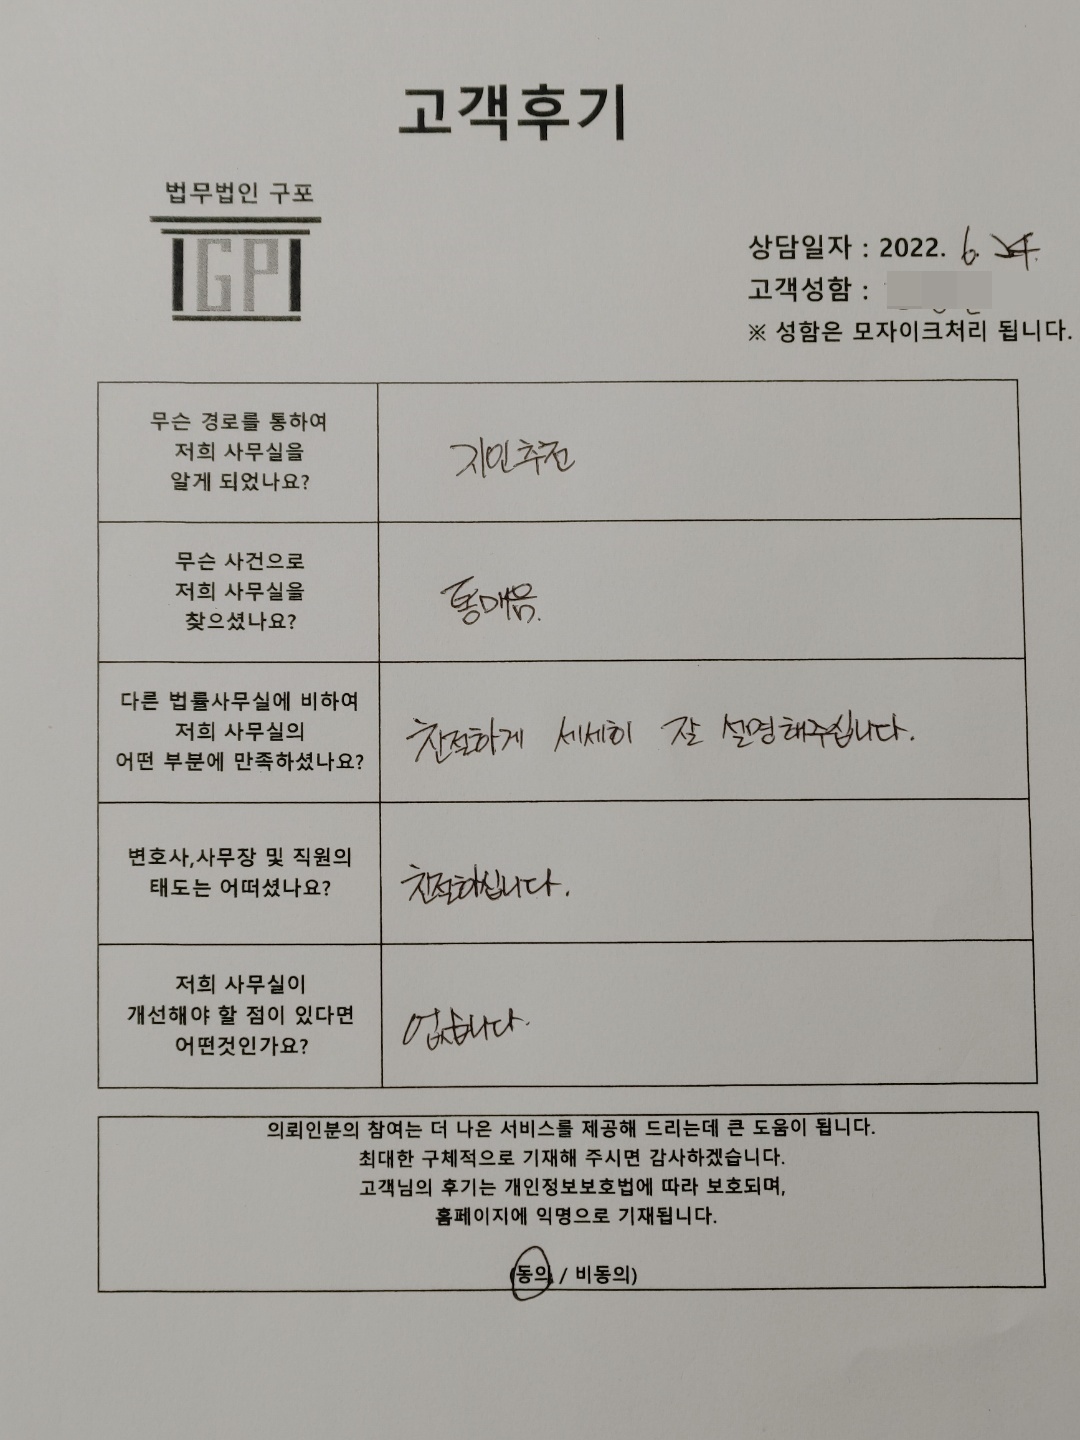 고객후기
법무법인 구포
GP
상담일자 : 2022. 6. 24.
고객성함 :
※ 성함은 모자이크처리 됩니다.
무슨 경로를 통하여
저희 사무실을
알게 되었나요?
지인추천
무슨 사건으로
저희 사무실을
찾으셨나요?
통매음.
다른 법률사무실에 비하여
저희 사무실의
어떤 부분에 만족하셨나요?
친절하게 세세히 잘 설명해주십니다.
변호사,사무장 및 직원의
태도는 어떠셨나요?
친절하십니다.
저희 사무실이
개선해야 할 점이 있다면
어떤것인가요?
없습니다.
의뢰인분의 참여는 더 나은 서비스를 제공해 드리는데 큰 도움이 됩니다.
최대한 구체적으로 기재해 주시면 감사하겠습니다.
고객님의 후기는 개인정보보호법에 따라 보호되며,
홈페이지에 익명으로 기재됩니다.
(동의 / 비동의)